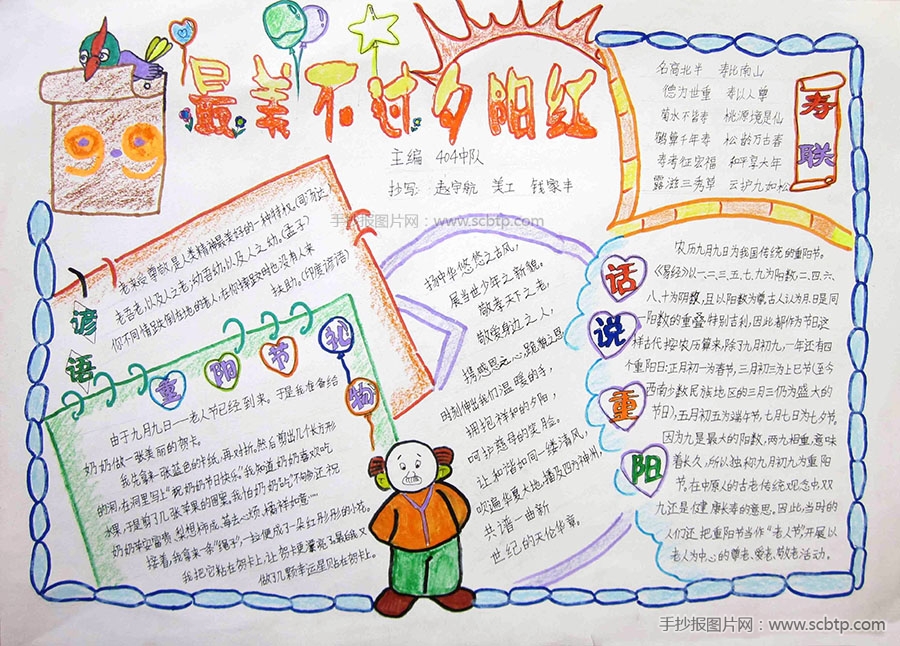 最美不过夕阳红
主编 404中队
抄写: 赵宇航 美工 钱家丰
手抄报图片网:www.scbtp.com
99
寿联
名高北斗 寿比南山
德为世重 寿以人尊
菊水不皆寿 桃源境是仙
鹤算千年寿 松龄万古春
寿考征宏福 和平享大年
露滋三秀草 云护九如松
谚语
老来受尊敬,是人类精神最美好的一种特权。(司汤达)
老吾老,以及人之老;幼吾幼,以及人之幼。(孟子)
你不同情跌倒在地的老人,在你摔跤时也没有人来
扶助。(印度谚语)
重阳节礼物
由于九月九日——老人节已经到来。于是我准备给
奶奶做一张美丽的贺卡。
我先拿来一张蓝色的卡纸,再对折,然后剪出几个长方形
的洞,在洞里写上"祝奶奶节日快乐。"我知道奶奶喜欢吃
水果,于是剪了几张苹果的图案,我怕奶奶
奶奶平安富贵、梨想柿成、莓去心烦、橘祥如意…
接着,我拿来一条"绳子"一拉便成了一朵红彤彤的小花。
我把它粘在贺卡上,让贺卡更漂亮了。最后,我又
做了几颗幸运星贴在贺卡。
扬中华悠悠之古风,
展当世少年之新貌。
敬孝天下之老,
敬爱身边之人,
携感恩之心,跪貌之恩
时刻伸出我们温暖的手,
拥抱祥和的夕阳,
呵护慈母的笑脸。
让和谐如同一缕清风,
吹遍华夏大地,播及四方神州,
共谱一曲新
世纪的天伦华章。
话说重阳
农历九月九日为我国传统的重阳节。
《易经》以一、三、五、七、九为阳数,二、四、六、
八、十为阴数,且以阳数为尊,古人认为月日是同
一阳数的重叠,特别吉利,因此都作为节日。这
样古代按农历算来,除了九月初九,一年还有四
个重阳日:正月初一为春节,三月初三为上巳节(至今
西南少数民族地区的三月三仍为盛大的
节日),五月初五为端午节,七月七日为七夕节。
因为九是最大的阳数,两九相重,意味
着长久,所以独称九月初九为重阳
节。在中原人的古老传统观念中,双
九还是健康长寿的意思。因此,当时的
人们还把重阳节当作"老人节"开展以
老人为中心的尊老、爱老、敬老活动。
手抄报图片网:www.scbtp.com